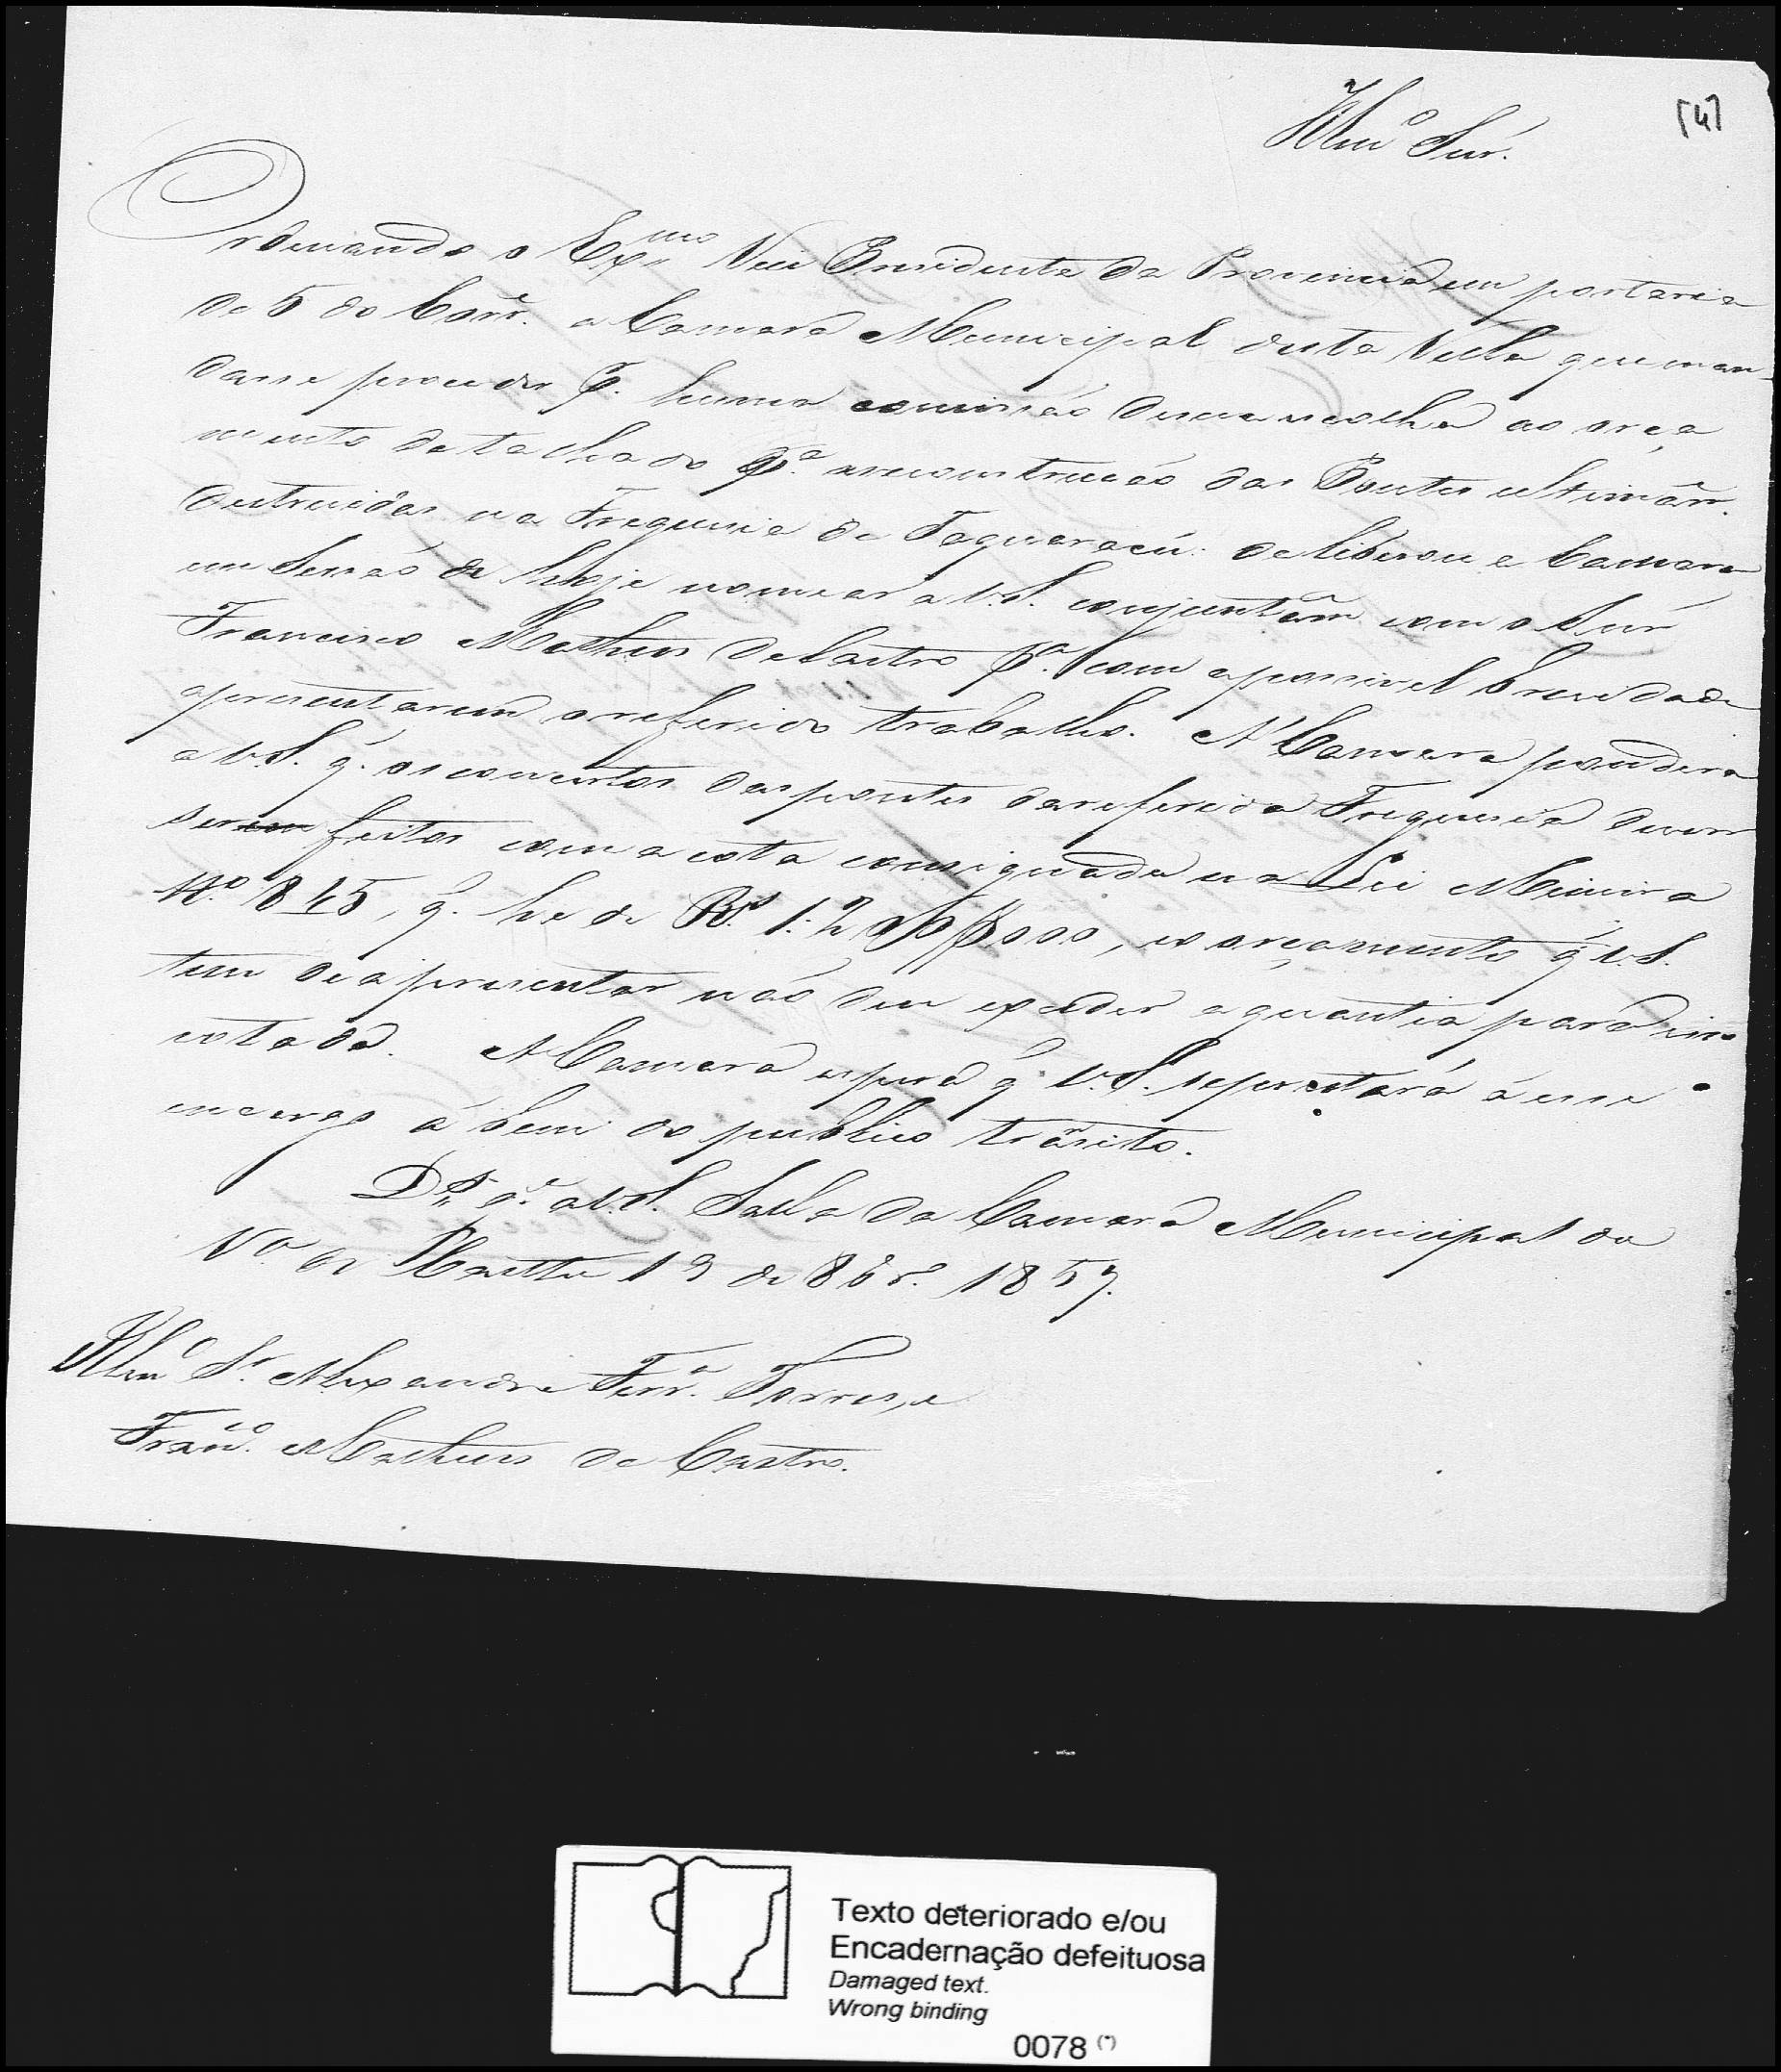 [4]
Illmº Snr.
Ordenando o Exmo Vice Presidente da Provincia em portaria
de 5 do Corr.e a Camara Municipal desta Villa que man-
dasse proceder p. huma comissão de sua escolha ao orça
mento detalhado p.ª a reconstrucção das Pontes ultimam.
destruidas na Freguesia de Taquaraçú: deliberou a Camara
em Sessão de hoje nomear a V.S. conjuntam com o Snr
Francisco Matheus de Castro p.ª com a possivel brevidade
apresentarem o referido trabalho. A Camara pondera
a V.S. q. os concertos das pontes da referida Freguesia devem
ser feitos com a cota consignada na Lei Mineira
Nº 815, q. he de Rs 1:200$000, e o orçamento q V.S.
tem de apresentar não deve exceder a quantia para isso
cotada. A Camara espera q. V.S. se prestará á esse
encargo á bem do publico transito.
Ds g.e a V.S. Salla da Camara Municipal da
Vª de Caethe 19 de 8br.º 1857.
Illmº Sr. Alexandre Ferr.ª Torres, e
Francº. Matheus de Castro.
Texto deteriorado e/ou
Encadernação defeituosa
Damaged text.
Wrong binding
0078 (*)